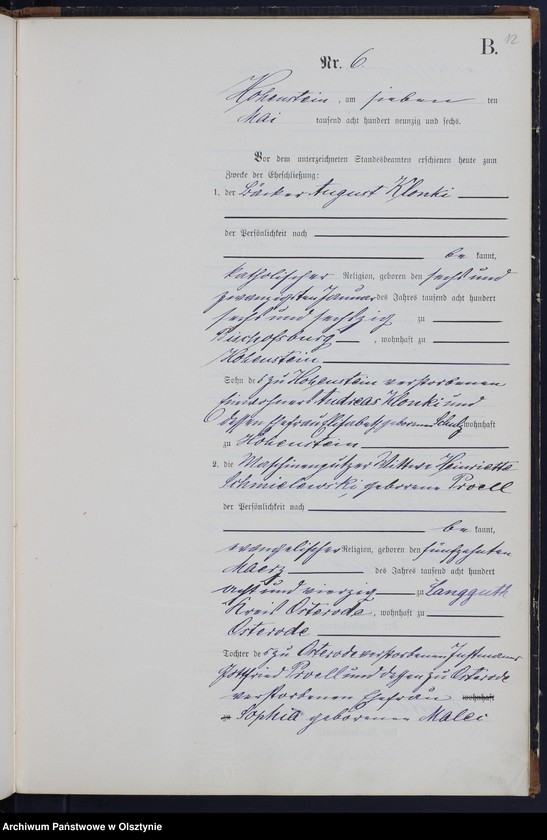 B. 12
Nr. 6
Hohenstein, am sieben ten
Mai tausend acht hundert neunzig und sechs.
Vor dem unterzeichneten Standesbeamten erschienen heute zum
Zwecke der Eheschließung:
1. der Bäcker August Klonki
der Persönlichkeit nach
be kannt,
katholischer Religion, geboren den sechs und
zwanzigsten Januar des Jahres tausend acht hundert
sechs und sechszig zu
Bischofsburg, wohnhaft zu
Hohenstein
Sohn des zu Hohenstein verstorbenen
Einwohners Andreas Klonki und
dessen Ehefrau Elisabeth geborenen Schulz wohnhaft
zu Hohenstein
2. die Maschinenputzer Wittwe Henriette
Schmielewski, geborene Proell
der Persönlichkeit nach
be kannt,
evangelischer Religion, geboren den fünfzehnten
Maerz des Jahres tausend acht hundert
acht und vierzig zu Langguth
Kreis Osterode, wohnhaft zu
Osterode
Tochter des zu Osterode verstorbenen Instmanns
Gottfried Proell und dessen zu Osterode
verstorbenen Ehefrau wohnhaft
zu Sophia geborenen Malei
Archiwum Państwowe w Olsztynie